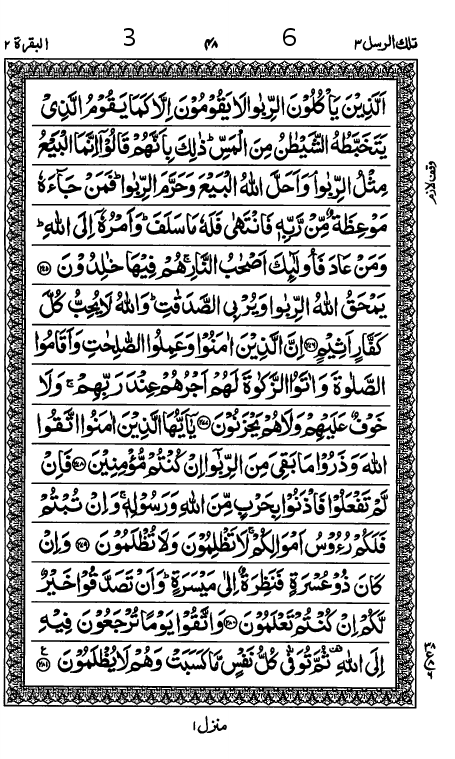 تلك الرسل ٣ 6 ٤٨ 3 البقرة ٢
اَلَّذِيۡنَ يَاۡكُلُوۡنَ الرِّبٰوا لَا يَقُوۡمُوۡنَ اِلَّا كَمَا يَقُوۡمُ الَّذِىۡ
يَتَخَبَّطُهُ الشَّيۡطٰنُ مِنَ الۡمَسِّ‌ؕ ذٰلِكَ بِاَنَّهُمۡ قَالُوۡۤا اِنَّمَا الۡبَيۡعُ
مِثۡلُ الرِّبٰوا‌ۘ وَاَحَلَّ اللّٰهُ الۡبَيۡعَ وَحَرَّمَ الرِّبٰوا‌ؕ فَمَنۡ جَآءَهٗ
وقف لازم
مَوۡعِظَةٌ مِّنۡ رَّبِّهٖ فَانۡتَهٰى فَلَهٗ مَا سَلَفَؕ وَاَمۡرُهٗۤ اِلَى اللّٰهِ‌ؕ
وَمَنۡ عَادَ فَاُولٰٓٮِٕكَ اَصۡحٰبُ النَّارِ‌ۚ هُمۡ فِيۡهَا خٰلِدُوۡنَ ﴿۲۷۵﴾
يَمۡحَقُ اللّٰهُ الرِّبٰوا وَيُرۡبِى الصَّدَقٰتِ‌ؕ وَاللّٰهُ لَا يُحِبُّ كُلَّ
كَفَّارٍ اَثِيۡمٍ ﴿۲۷۶﴾ اِنَّ الَّذِيۡنَ اٰمَنُوۡا وَعَمِلُوا الصّٰلِحٰتِ وَاَقَامُوا
الصَّلٰوةَ وَاٰتَوُا الزَّكٰوةَ لَهُمۡ اَجۡرُهُمۡ عِنۡدَ رَبِّهِمۡ‌ۚ وَلَا
خَوۡفٌ عَلَيۡهِمۡ وَلَا هُمۡ يَحۡزَنُوۡنَ ﴿۲۷۷﴾ يٰۤاَيُّهَا الَّذِيۡنَ اٰمَنُوا اتَّقُوا
اللّٰهَ وَذَرُوۡا مَا بَقِىَ مِنَ الرِّبٰٓوا اِنۡ كُنۡتُمۡ مُّؤۡمِنِيۡنَ ﴿۲۷۸﴾ فَاِنۡ
لَّمۡ تَفۡعَلُوۡا فَاۡذَنُوۡا بِحَرۡبٍ مِّنَ اللّٰهِ وَرَسُوۡلِهٖ‌ۚ وَاِنۡ تُبۡتُمۡ
فَلَكُمۡ رُءُوۡسُ اَمۡوَالِكُمۡ‌ۚ لَا تَظۡلِمُوۡنَ وَلَا تُظۡلَمُوۡنَ ﴿۲۷۹﴾ وَاِنۡ
كَانَ ذُوۡ عُسۡرَةٍ فَنَظِرَةٌ اِلٰى مَيۡسَرَةٍ‌ؕ وَاَنۡ تَصَدَّقُوۡا خَيۡرٌ
لَّكُمۡ اِنۡ كُنۡتُمۡ تَعۡلَمُوۡنَ ﴿۲۸۰﴾ وَاتَّقُوۡا يَوۡمًا تُرۡجَعُوۡنَ فِيۡهِ
اِلَى اللّٰهِ ثُمَّ تُوَفّٰى كُلُّ نَفۡسٍ مَّا كَسَبَتۡ وَهُمۡ لَا يُظۡلَمُوۡنَ ﴿۲۸۱﴾
منزل ١